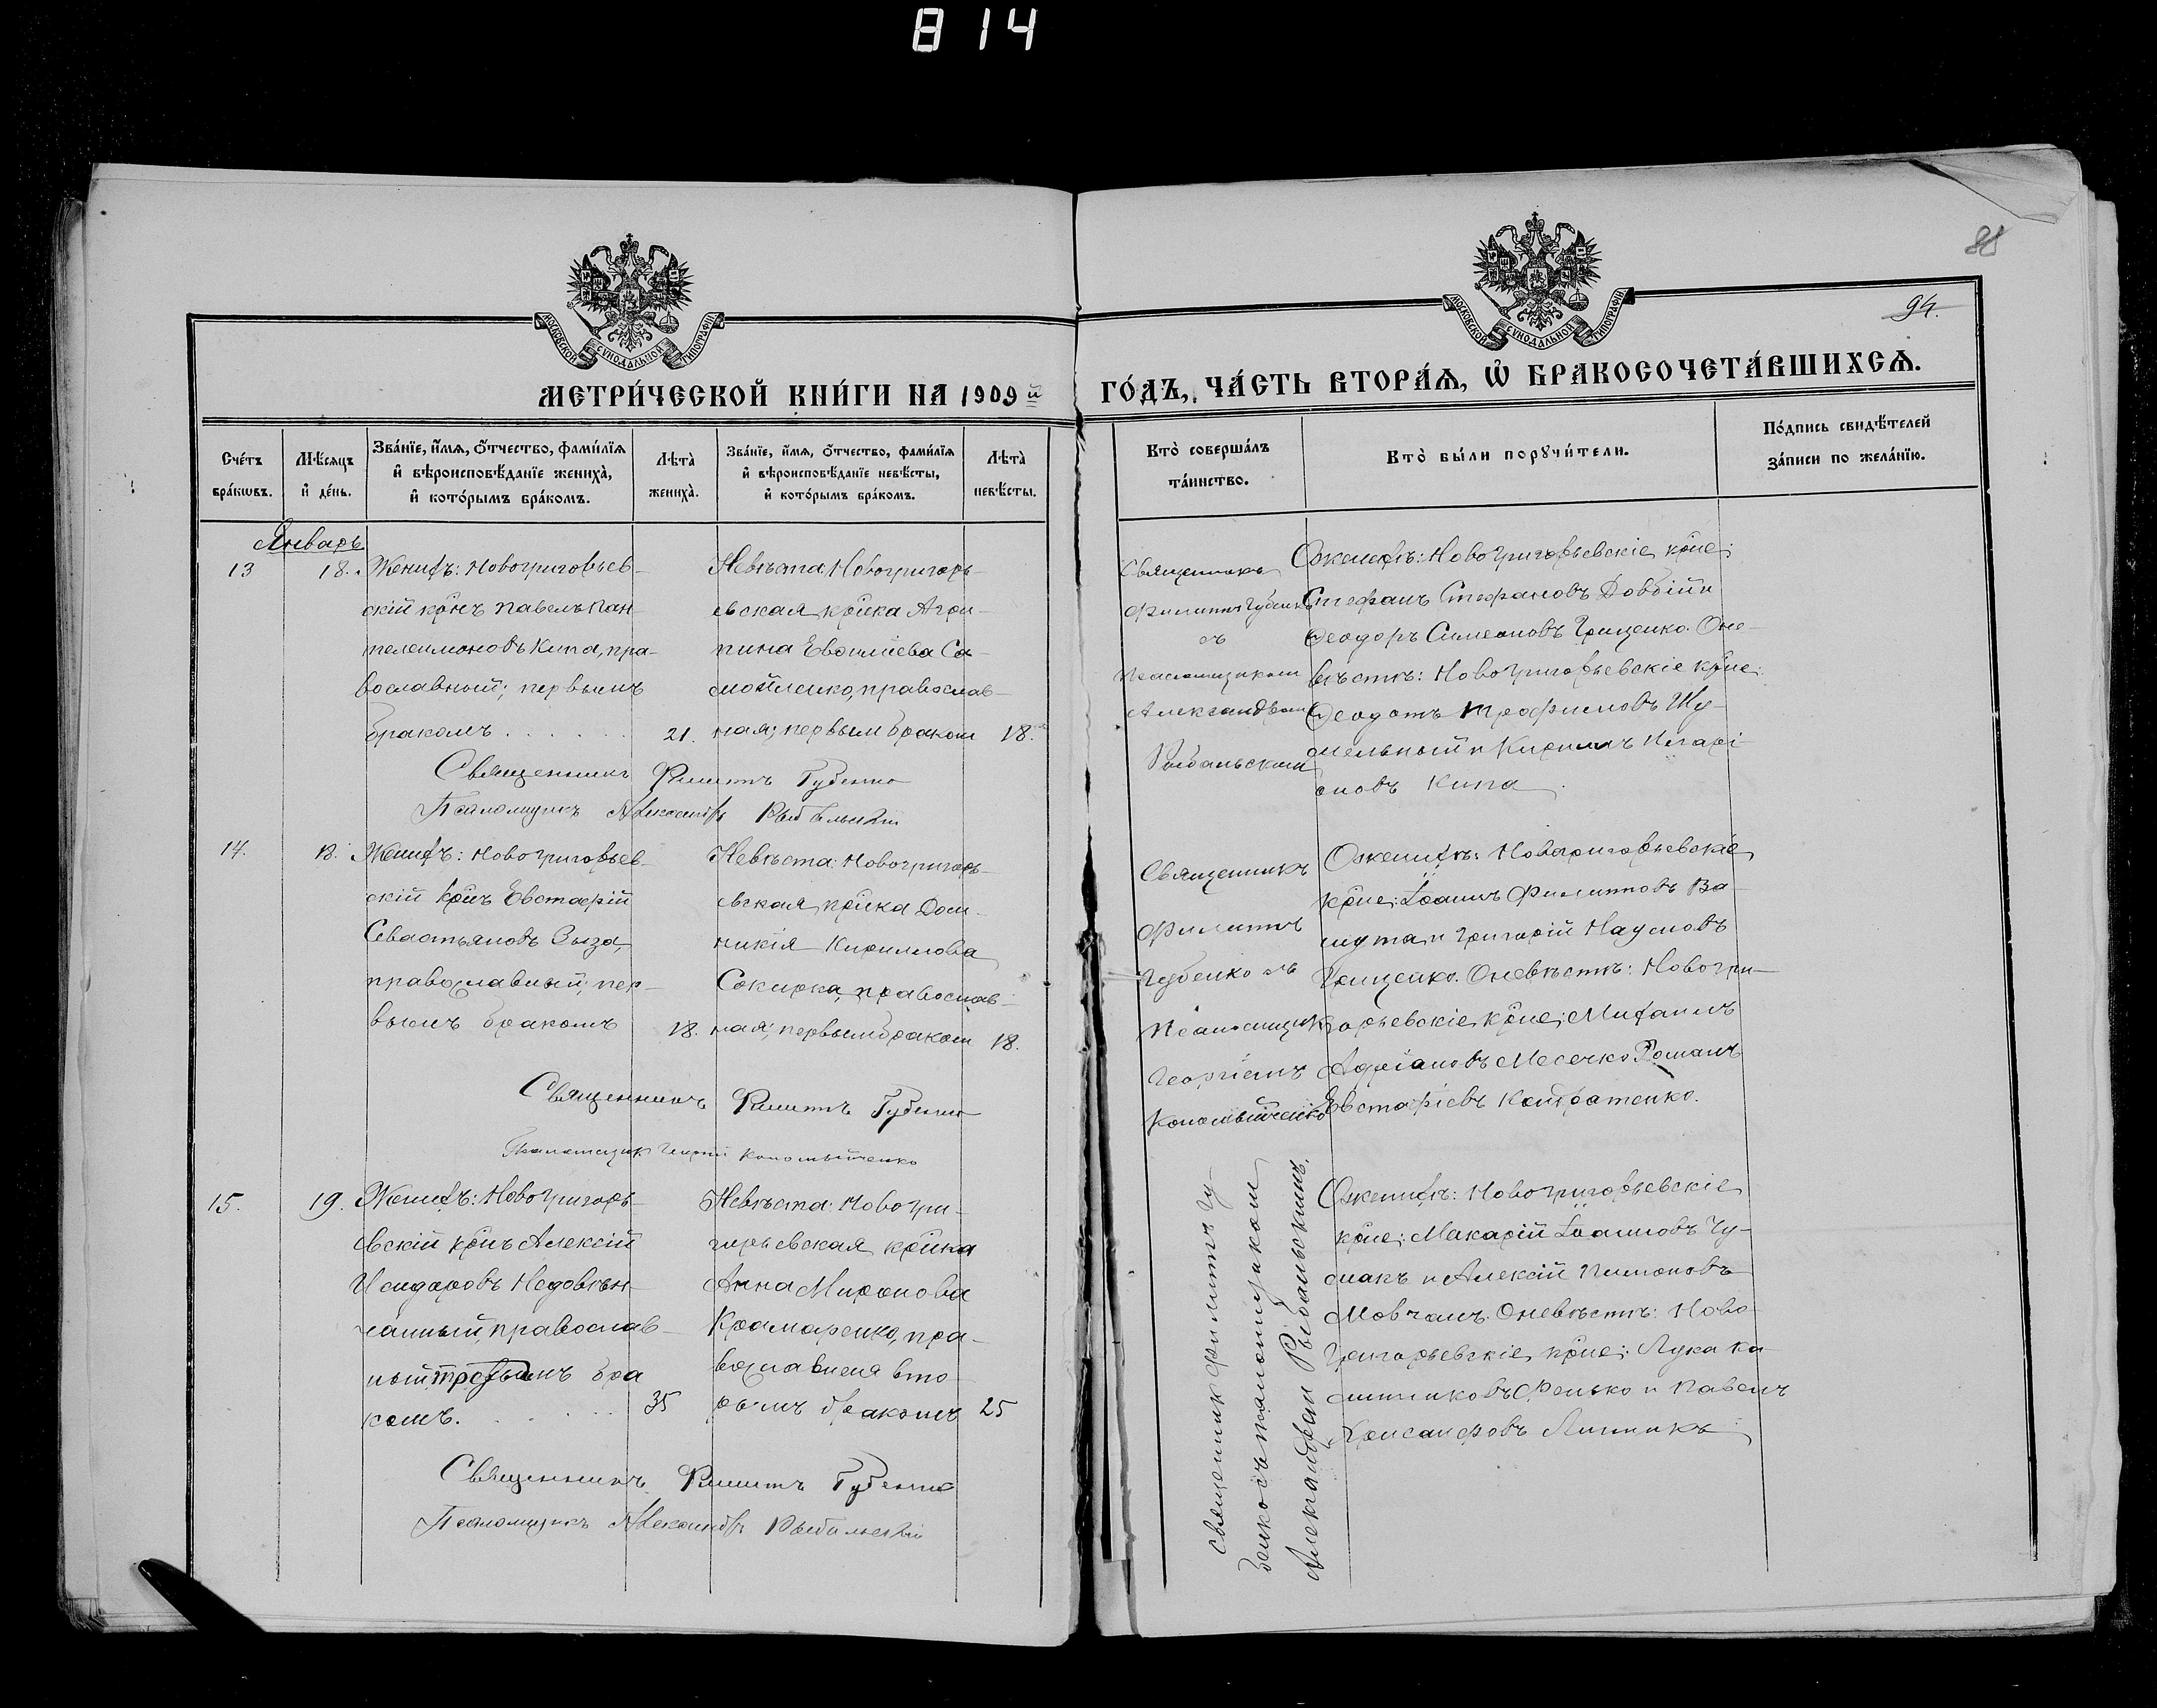 814
88
94.
МОСКОВСКОЙ СѴНОДАЛЬНОЙ ТИПОГРАФІИ
МОСКОВСКОЙ СѴНОДАЛЬНОЙ ТИПОГРАФІИ
МЕТРИ́ЧЕСКОЙ КНИ́ГИ НА 1909й ГО́ДЪ, ЧА́СТЬ ВТОРА́Ѧ, Ѡ҆ БРАКОСОЧЕТА́ВШИХСѦ.
Сче́тъ бра́кѡвъ.
Мѣ́сѧцъ и҆ де́нь.
Зва́нїе, и҆́мѧ, ѻ҆́тчество, фами́лїѧ
и҆ вѣроисповѣ́данїе жениха̀,
и҆ кото́рымъ бра́комъ.
Лѣ́та̀ жениха̀.
Зва́нїе, и҆́мѧ, ѻ҆́тчество, фами́лїѧ
и҆ вѣроисповѣ́данїе невѣ́сты,
и҆ кото́рымъ бра́комъ.
Лѣ́та̀ невѣ́сты.
Кто̀ соверша́лъ та́инство.
Кто̀ бы́ли порꙋчи́тели.
По́дпись свидѣ́телей
за́писи по жела́нїю.
Январь.
13
18.
Женихъ: Новогригорьев-
скій крнъ Павелъ Пан
телеимоновъ Кипа, пра-
вославный; первымъ
бракомъ
21.
Невѣста Новогригорь-
евская крнка Агри-
пина Евсиміева Са-
мойленко, православ-
ная; первым браком
18.
Священникъ
Филиппъ Губенко
съ
Псаломщиком
Александром
Рыбальским
Ожених: Новогригорьевскіе крне:
Стефанъ Стефановъ Довбій и
Ѳеодоръ Симеоновъ Гриценко. Оне-
вѣстѣ: Новогригорьевскіе крне:
Ѳеодотъ Трофимовъ Шу-
мельный и Кирилъ Илларі-
оновъ Кипа
Священникъ Филиппъ Губенко
Псаломщикъ Александръ Рыбальскій
14.
18.
Женихъ: Новогригорьев-
скій крнъ Евстафій
Севастьяновъ Зыза,
православный; пер-
вымъ бракомъ
18.
Невѣста: Новогригорь-
евская крнка Дом-
никія Кириллова
Сокирка, православ-
ная; первым браком
18.
Священникъ
Филиппъ
Губенко съ
Псаломщик
Георгіемъ
Кономыйченко
Оженихѣ: Новогригорьевскіе
крне: Іоаннъ Филипповъ Ва-
шута и Григорій Наумовъ
Гриценко. Оневѣстѣ: Новогри-
горьевскіе крне: Михаилъ
Адріановъ Месечко Романъ
Евстафіевъ Кондратенко.
Священникъ Филиппъ Губенко
Псаломщик Георгій Кономыйченко
15.
19.
Женихъ: Новогригорь-
евскій крнъ Алексій
Исидоровъ Недовѣн-
чанный, православ-
ный третьимъ бра
комъ.
35
Невѣста: Новогри-
горьевская крнка
Анна Миронова
Крамаренко, пра-
вославная вто-
рымъ бракомъ
25
Священник Филиппъ Гу-
бенко съ псаломщиком
Александром Рыбальскимъ.
Оженихѣ: Новогригорьевскіе
крне: Макарій Іоанновъ Чу-
макъ и Алексій Пимоновъ
Мовчанъ. Оневѣстѣ: Ново-
григорьевскіе крне: Лука Ка-
линниковъ Фенько и Павелъ
Хрисанфовъ Линникъ
Священникъ Филиппъ Губенко
Псаломщикъ Александръ Рыбальскій